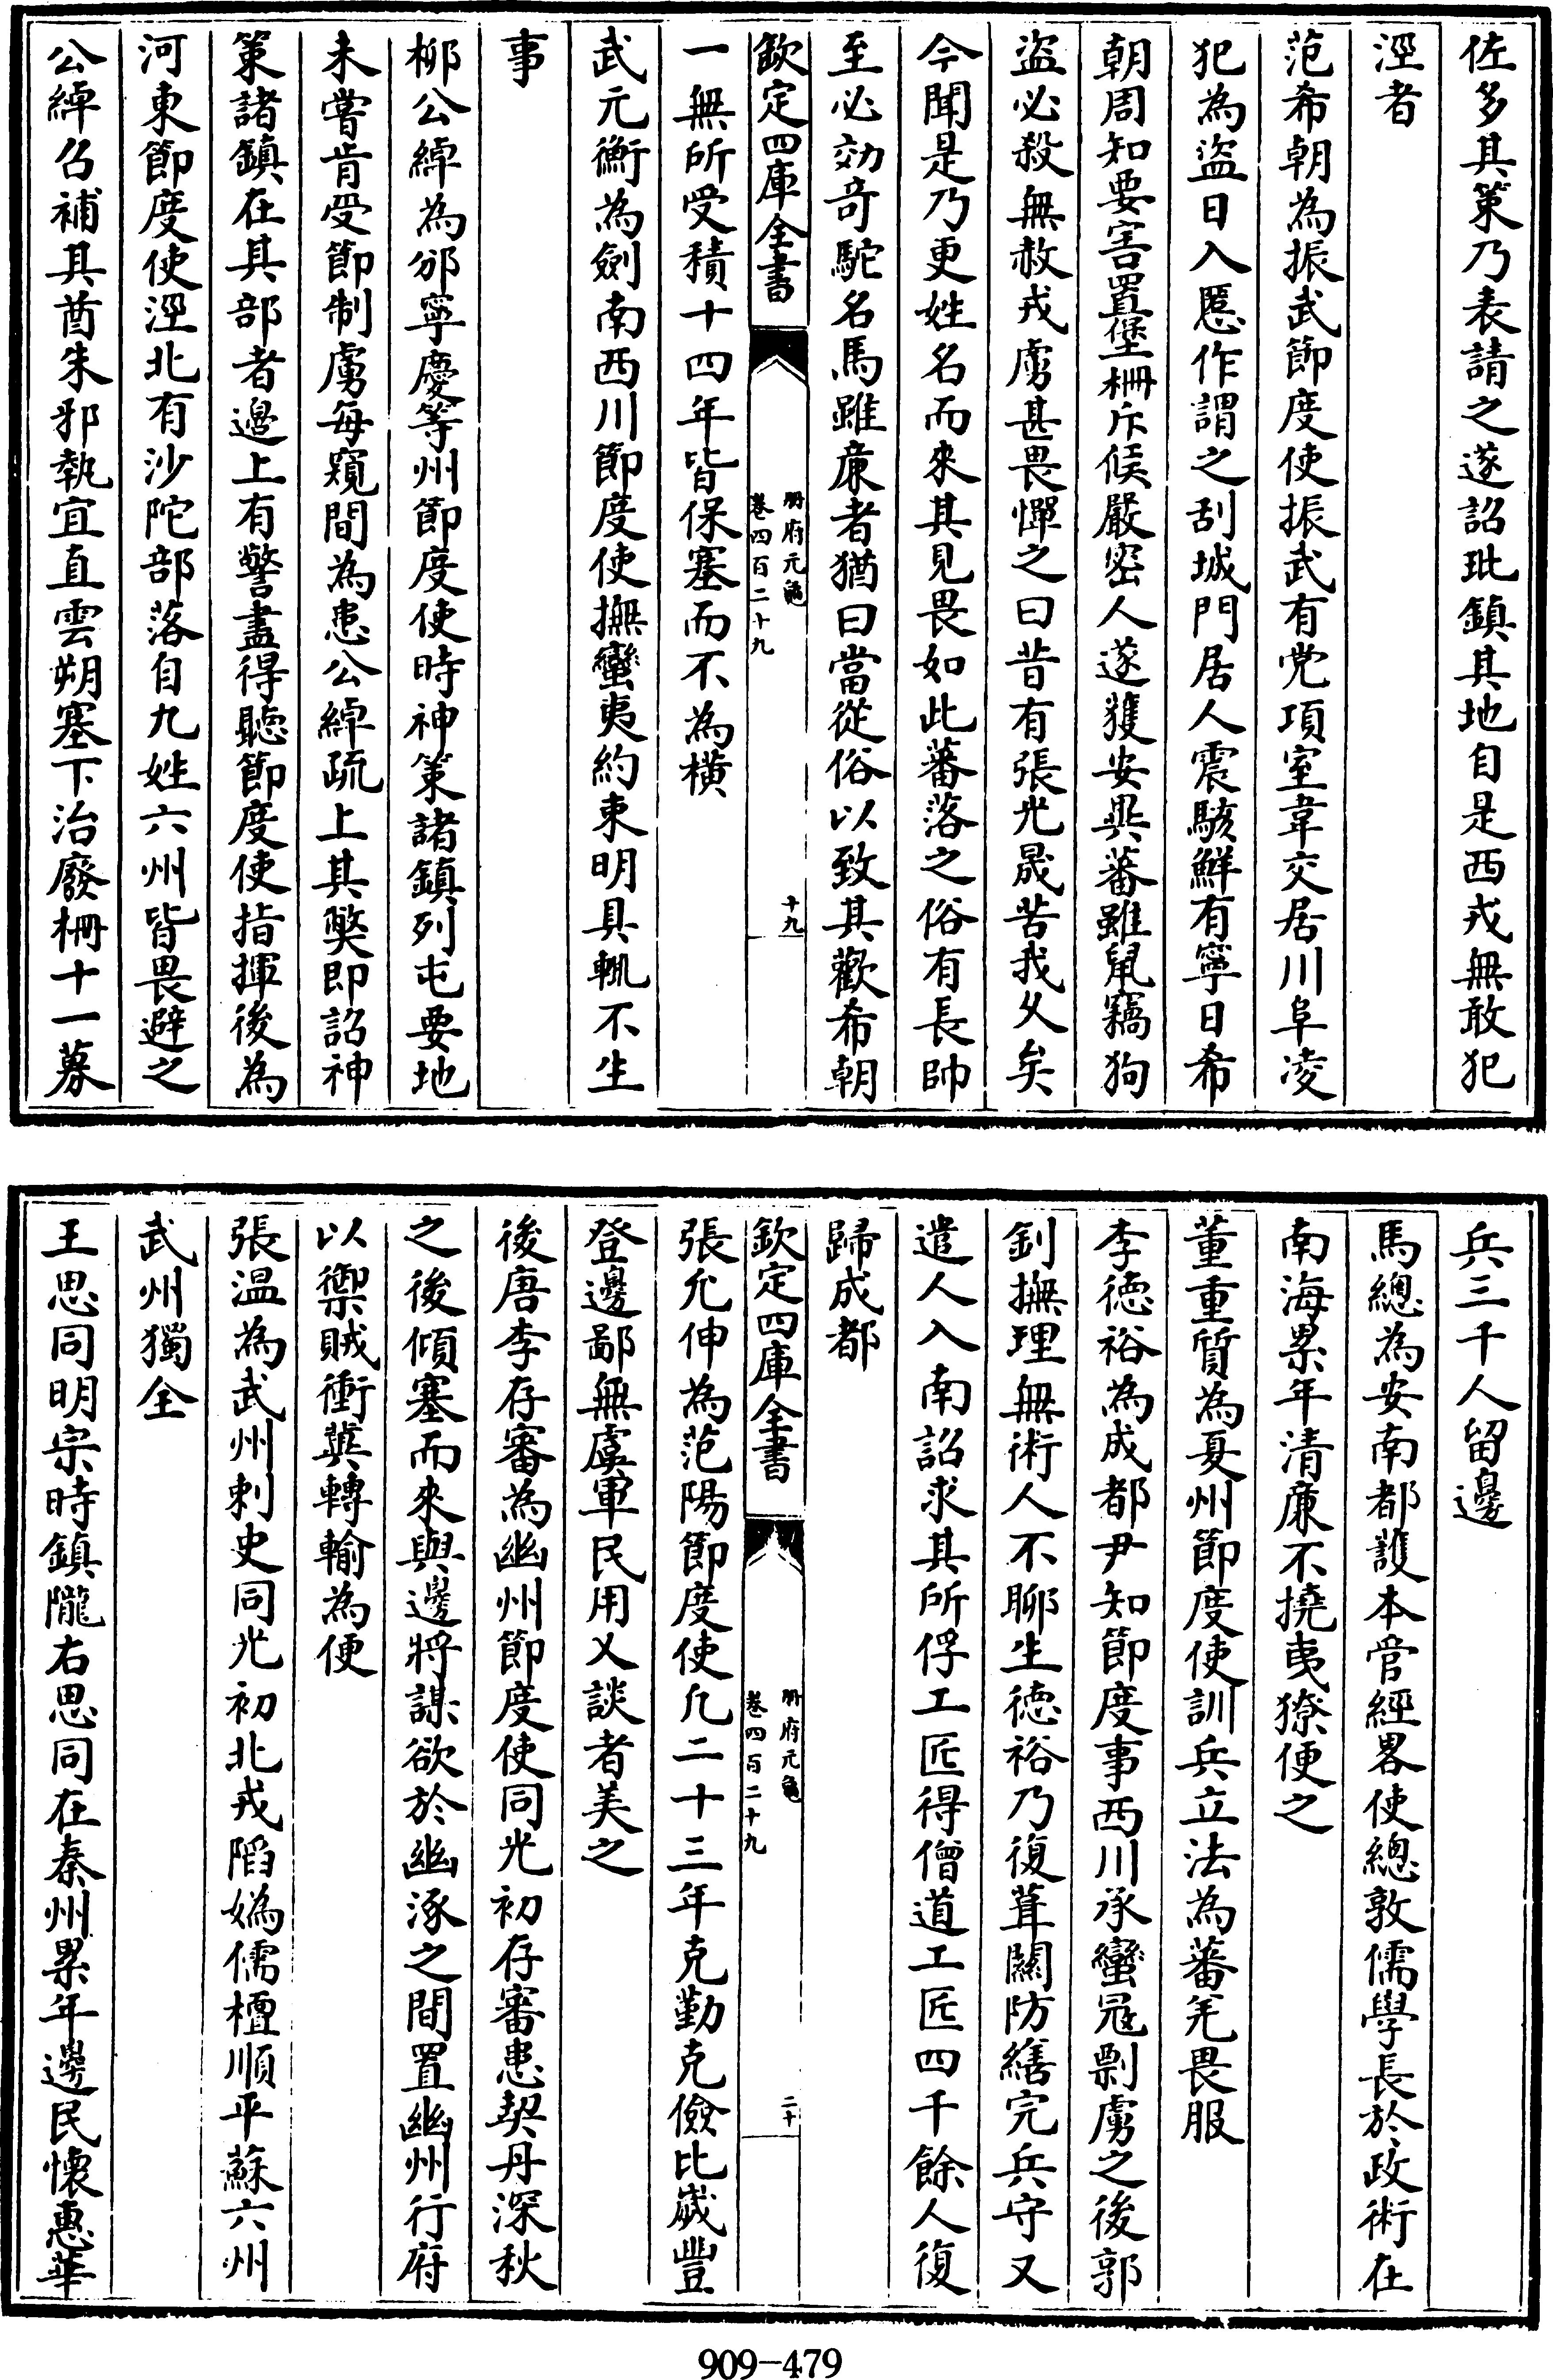 佐多其策乃表請之遂詔玼鎮其地自是西戎無敢犯
涇者
范希朝為振武節度使振武有党項室韋交居川阜凌
犯為盗日入慝作謂之刮城門居人震駭鮮有寧日希
朝周知要害置堡柵斥候嚴密人遂獲安興蕃雖鼠竊狗
盗必殺無赦戎虜甚畏憚之曰昔有張光晟苦我久矣
今聞是乃更姓名而來其見畏如此蕃落之俗有長帥
至必効奇駝名馬雖廉者猶曰當從俗以致其歡希朝
欽定四庫全書
册府元龜
卷四百二十九
十九
一無所受積十四年皆保塞而不為横
武元衡為劍南西川節度使撫蠻夷約束明具輒不生
事
柳公綽為邠寧慶等州節度使時神策諸鎮列屯要地
未嘗肯受節制虜每窺間為患公綽疏上其弊即詔神
策諸鎮在其部者邊上有警盡得聽節度使指揮後為
河東節度使涇北有沙陀部落自九姓六州皆畏避之
公綽召補其酋朱邪執宜直雲朔塞下治廢柵十一募
兵三千人留邊
馬總為安南都護本管經畧使總敦儒學長於政術在
南海累年清廉不撓夷獠便之
董重質為夏州節度使訓兵立法為蕃羌畏服
李徳裕為成都尹知節度事西川承蠻冦剽虜之後郭
釗撫理無術人不聊生徳裕乃復葺關防繕完兵守又
遣人入南詔求其所俘工匠得僧道工匠四千餘人復
歸成都
欽定四庫全書
册府元龜
卷四百二十九
二十
張允伸為范陽節度使凡二十三年克勤克儉比嵗豐
登邊鄙無虞軍民用乂談者美之
後唐李存審為幽州節度使同光初存審患契丹深秋
之後傾塞而來與邊將謀欲於幽涿之間置幽州行府
以禦賊衝與轉輸為便
張温為武州刺史同光初北戎䧟媯儒檀順平蘇六州
武州獨全
王思同明宗時鎮隴右思同在秦州累年邊民懷惠華
909-479